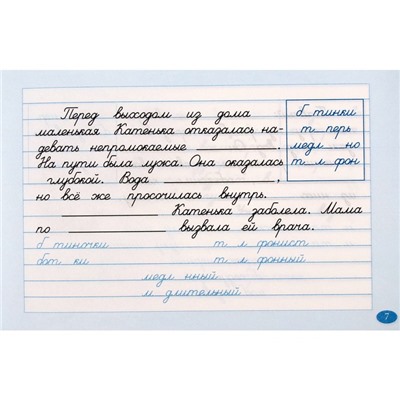 Перед выходом из дома
маленькая Катенька отказалась на-
девать непромокаемые __________.
На пути была лужа. Она оказалась
глубокой. Вода __________,
но всё же просочилась внутрь.
__________ Катенька заболела. Мама
по __________ вызвала ей врача.
б тинки
т перь
медл но
т л фон
б тиночки т л фонист
бот ки т л фонный
медл нный
м длительный
7